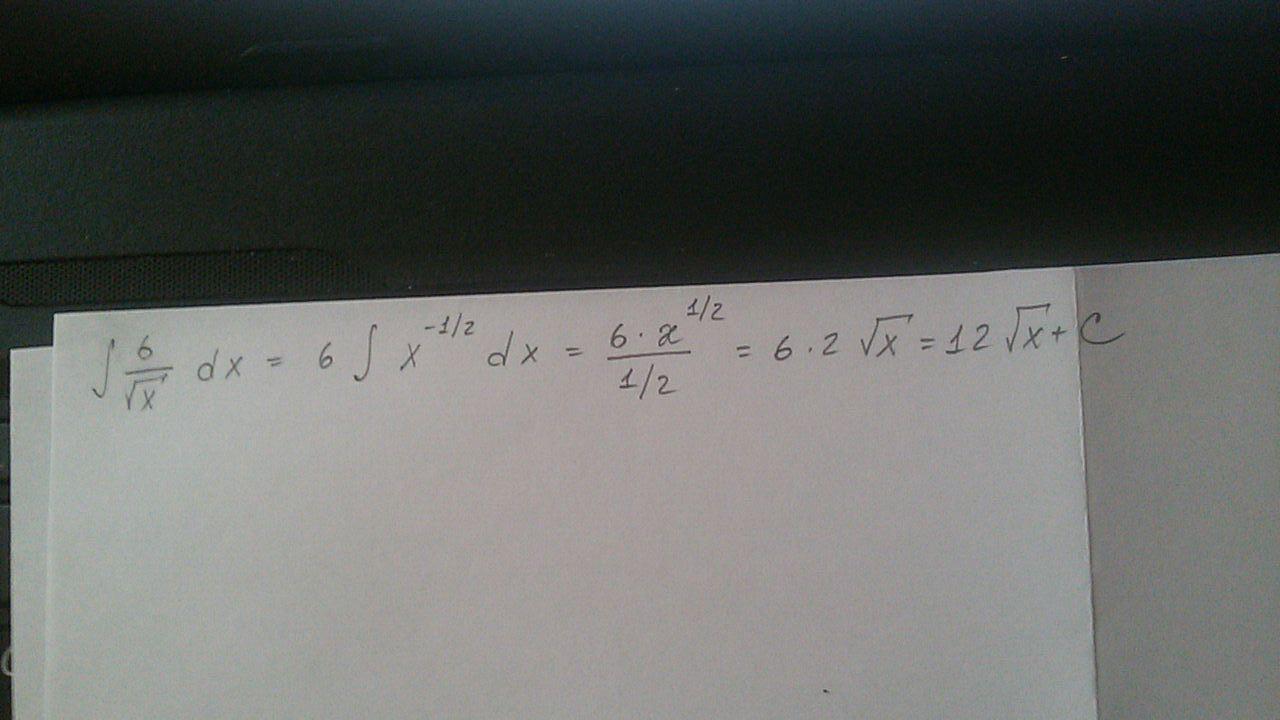 ∫ 6/√x dx = 6 ∫ x^(-1/2) dx = (6·x^(1/2))/(1/2) = 6·2 √x = 12 √x + C